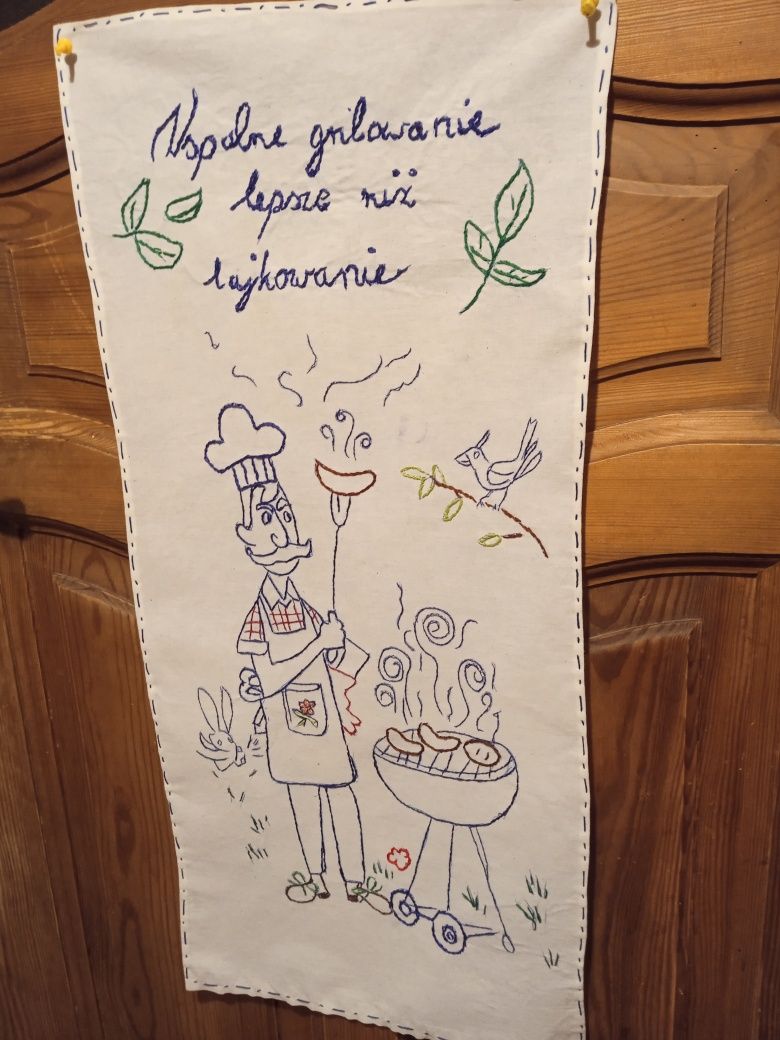 Wspólne grilowanie
lepsze niż
lajkowanie